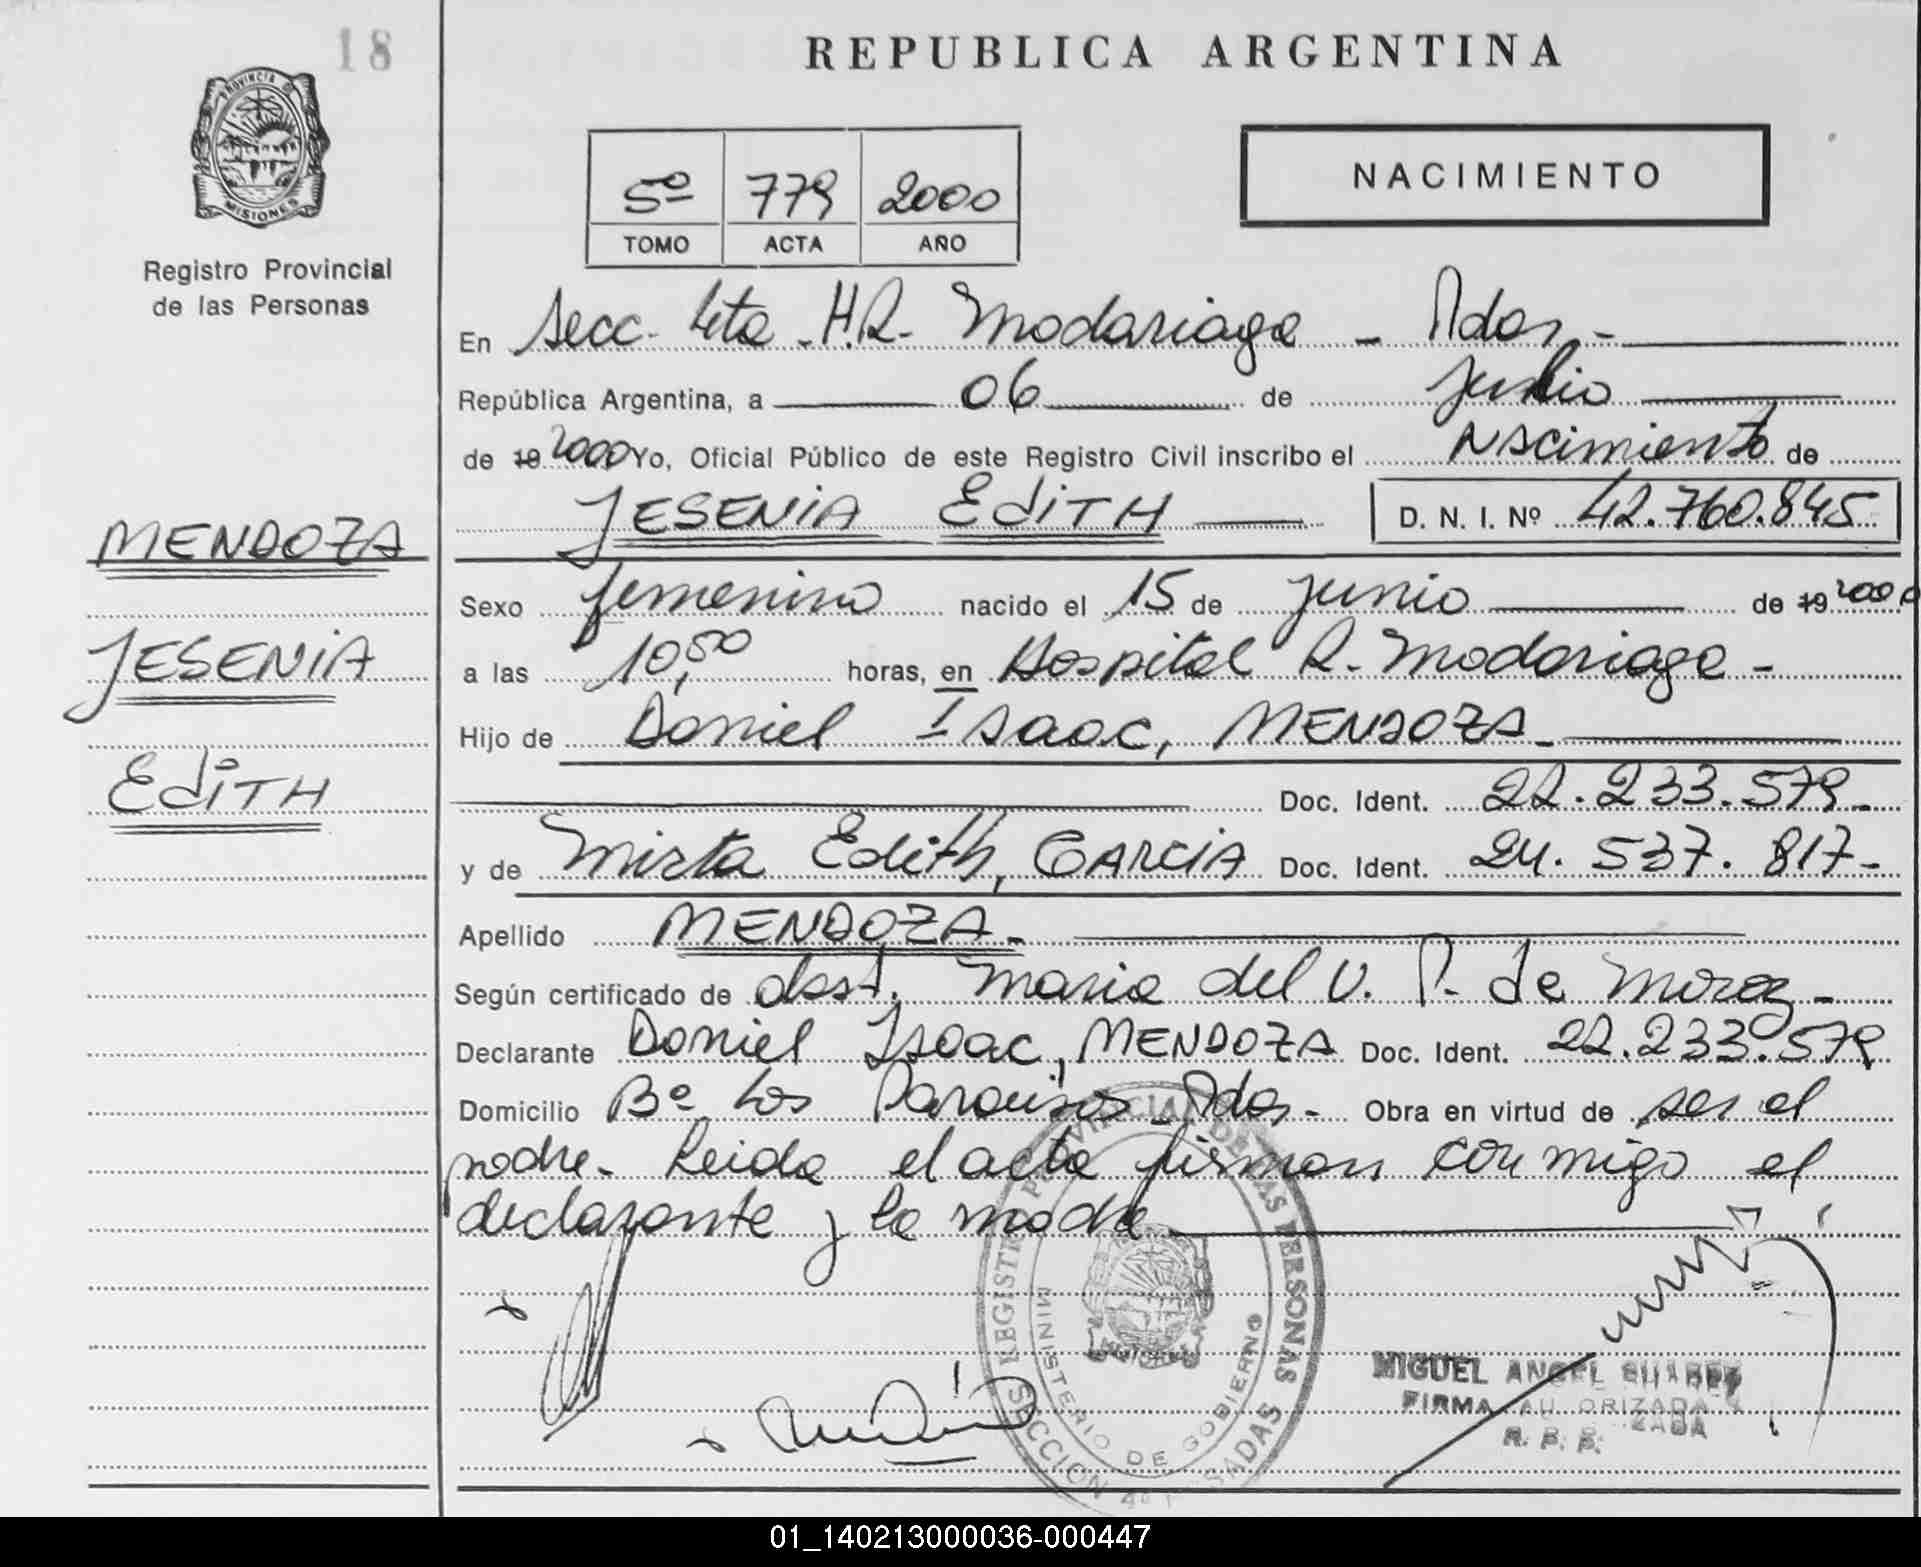 18
REPUBLICA ARGENTINA
PROVINCIA DE
MISIONES
Registro Provincial
de las Personas
5º 779 2000
TOMO ACTA AÑO
NACIMIENTO
En Secc. 4ta. H.R. Madariaga - Pdas.-
República Argentina, a 06 de Julio
de 19 2000 Yo, Oficial Público de este Registro Civil inscribo el Nacimiento de
JESENIA EdiTH D. N. I. Nº 42.760.845
MENDOZA
JESENIA
EdiTH
Sexo femenino nacido el 15 de junio de 19 2000
a las 10,50 horas, en Hospital R. Madariaga -
Hijo de Daniel Isaac, MENDOZA
Doc. Ident. 22.233.579-
y de Mirta Edith, GARCIA Doc. Ident. 24.537.817-
Apellido MENDOZA-
Según certificado de obst. Maria del V. P. de Moraz-
Declarante Daniel Isaac, MENDOZA Doc. Ident. 22.233.579
Domicilio Bº Los Paraisos Pdas- Obra en virtud de ser el
padre- Leida el acta firman conmigo el
declarante y la madre
REGISTRO PROVINCIAL DE LAS PERSONAS
MINISTERIO DE GOBIERNO
SECCION 4º
MIGUEL ANGEL SUAREZ
FIRMA AUTORIZADA
R. P. P.
01_140213000036-000447